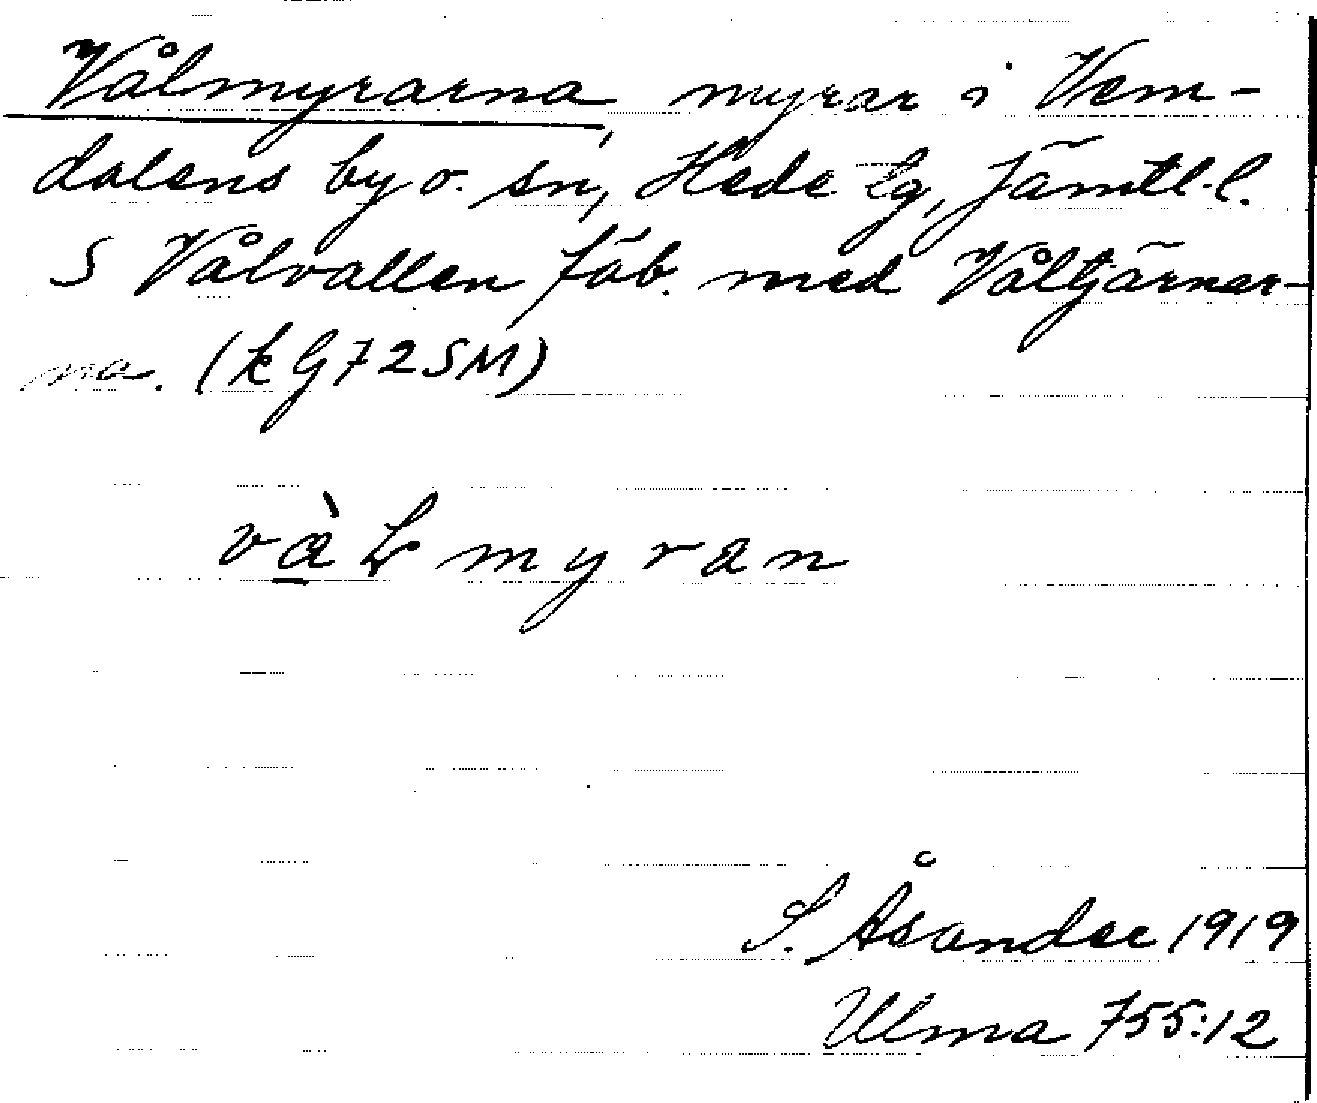 Vålmyrarna, myrar i Vem-
dalens by o. sn, Hede tg, Jämtl. l.
S Vålvallen fäb. med Våltjärnar-
na. (k G72SM)
và̱Lmyran
S. Åsander 1919
Ulma 755:12